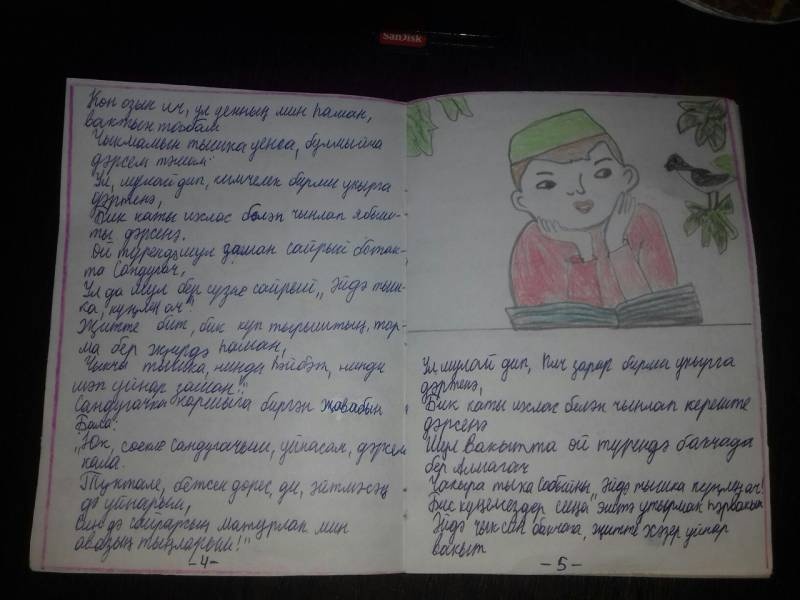 SanDisk
Көн озын ич, ул көннең мин һаман,
вактын табам
Чыкмамын тышка уенга, булмыйча
дәрсем тәмам.
Ул, шулай дип, кимчелек бирми укырга
дәртенә,
Бик каты ихлас белән чынлап ябыш-
ты дәрсенә.
Өй түрендә шул заман сайрый ботак-
та Сандугач,
Ул да шул бер сүзне сайрый: „Әйдә тыш-
ка, күңлең ач!"
Җитте бит, бик күп тырыштың, тор-
ма бер җирдә һаман,
Чыкчы тышка, нинди һәйбәт, нинди
шәп уйнар заман!"
Сандугачка каршыга биргән җавабын
Бала:
„Юк, сөекле сандугачым, уйнасам, дәрсем
кала.
Туктале, бетсен дәрес, ди, әйтмәсәң
дә уйнарым,
Син дә сайрарсың матурлап мин
авазың тыңларым!"
-4-
Ул, шулай дип, һич зарар бирми укырга
дәртенә,
Бик каты ихлас белән чынлап кереште
дәрсенә
Шул вакытта өй түрендә бакчада
бер Алмагач
Чакыра тышка Сабыйны: „Әйдә тышка күңлең ач!
Бик күңелсездер сиңа эштә утырмак һәрвакыт
Әйдә чык син бакчага, җитте хәзер уйнар
вакыт
-5-